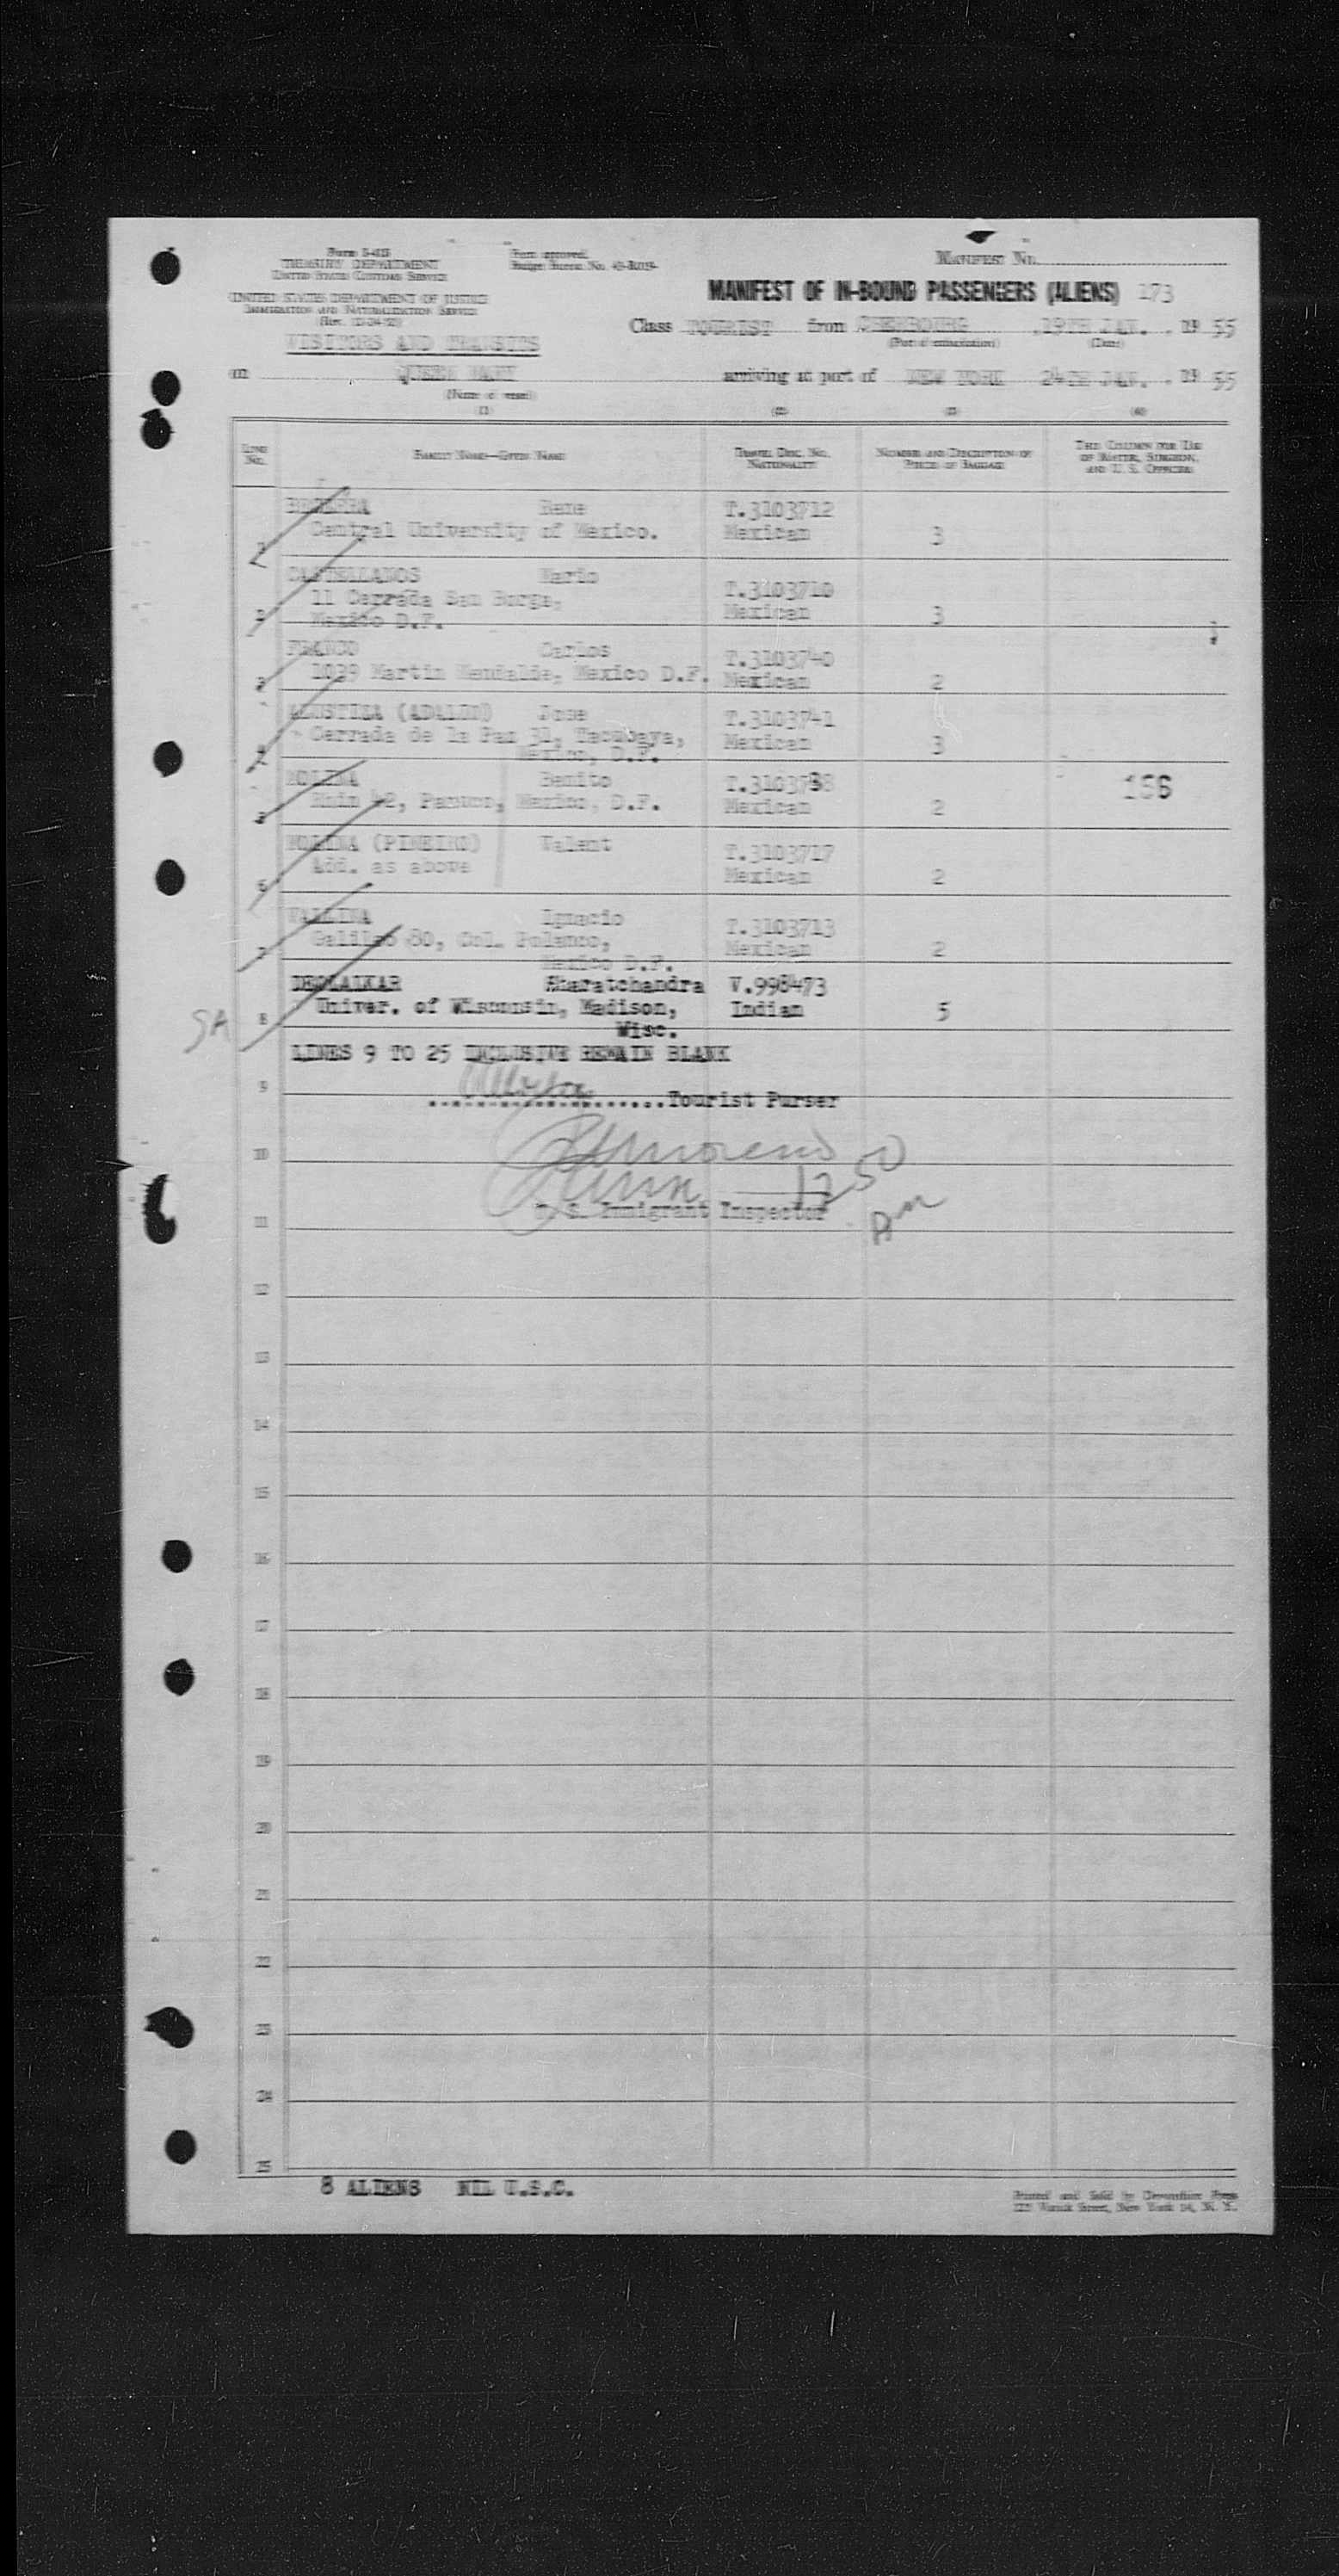 Form I-415
TREASURY DEPARTMENT
UNITED STATES CUSTOMS SERVICE
UNITED STATES DEPARTMENT OF JUSTICE
IMMIGRATION AND NATURALIZATION SERVICE
VISITORS AND TRANSITS
Form approved.
Budget Bureau No.
MANIFEST NO.
MANIFEST OF IN-BOUND PASSENGERS (ALIENS) 173
Class TOURIST from CHERBOURG 19TH JAN. , 19 55
(Port of embarkation) (Date)
on QUEEN MARY arriving at port of NEW YORK 24TH JAN. , 19 55
(Name of vessel)
(1) (2) (3) (4)
LINE NO.
FAMILY NAME—GIVEN NAME
TRAVEL DOC. NO. NATIONALITY
NUMBER AND DESCRIPTION OF PIECES OF BAGGAGE
THIS COLUMN FOR USE OF MASTER, SURGEON, AND U. S. OFFICERS
1 Rene T.3103712
Central University of Mexico. Mexican 3
2 CASTELLANOS Mario T.3103710
11 Cerrada San Borga, Mexican 3
Mexico D.F.
3 FRANCO Carlos T.3103740
1039 Martin Mendalde, Mexico D.F. Mexican 2
4 (ADALID) Jose T.3103741
Cerrada de la Paz 31, Tacubaya, Mexican 3
Mexico, D.F.
5 MOLINA Benito T.3103738
Rhin 42, Panuco, Mexico, D.F. Mexican 2 156
6 MOLINA (PINEIRO) Valent T.3103717
Add. as above Mexican 2
7 VALLINA Ignacio T.3103713
Galileo 80, Col. Polanco, Mexican 2
Mexico D.F.
SA 8 DEOLALKAR Sharatchandra V.998473
Univer. of Wisconsin, Madison, Indian 5
Wisc.
LINES 9 TO 25 INCLUSIVE REMAIN BLANK
9 Tourist Purser
10
1250
11 U. S. Immigrant Inspector
12
13
14
15
16
17
18
19
20
21
22
23
24
25
8 ALIENS NIL U.S.C.
Printed and Sold by Devonshire Press
Varick Street, New York 14, N. Y.